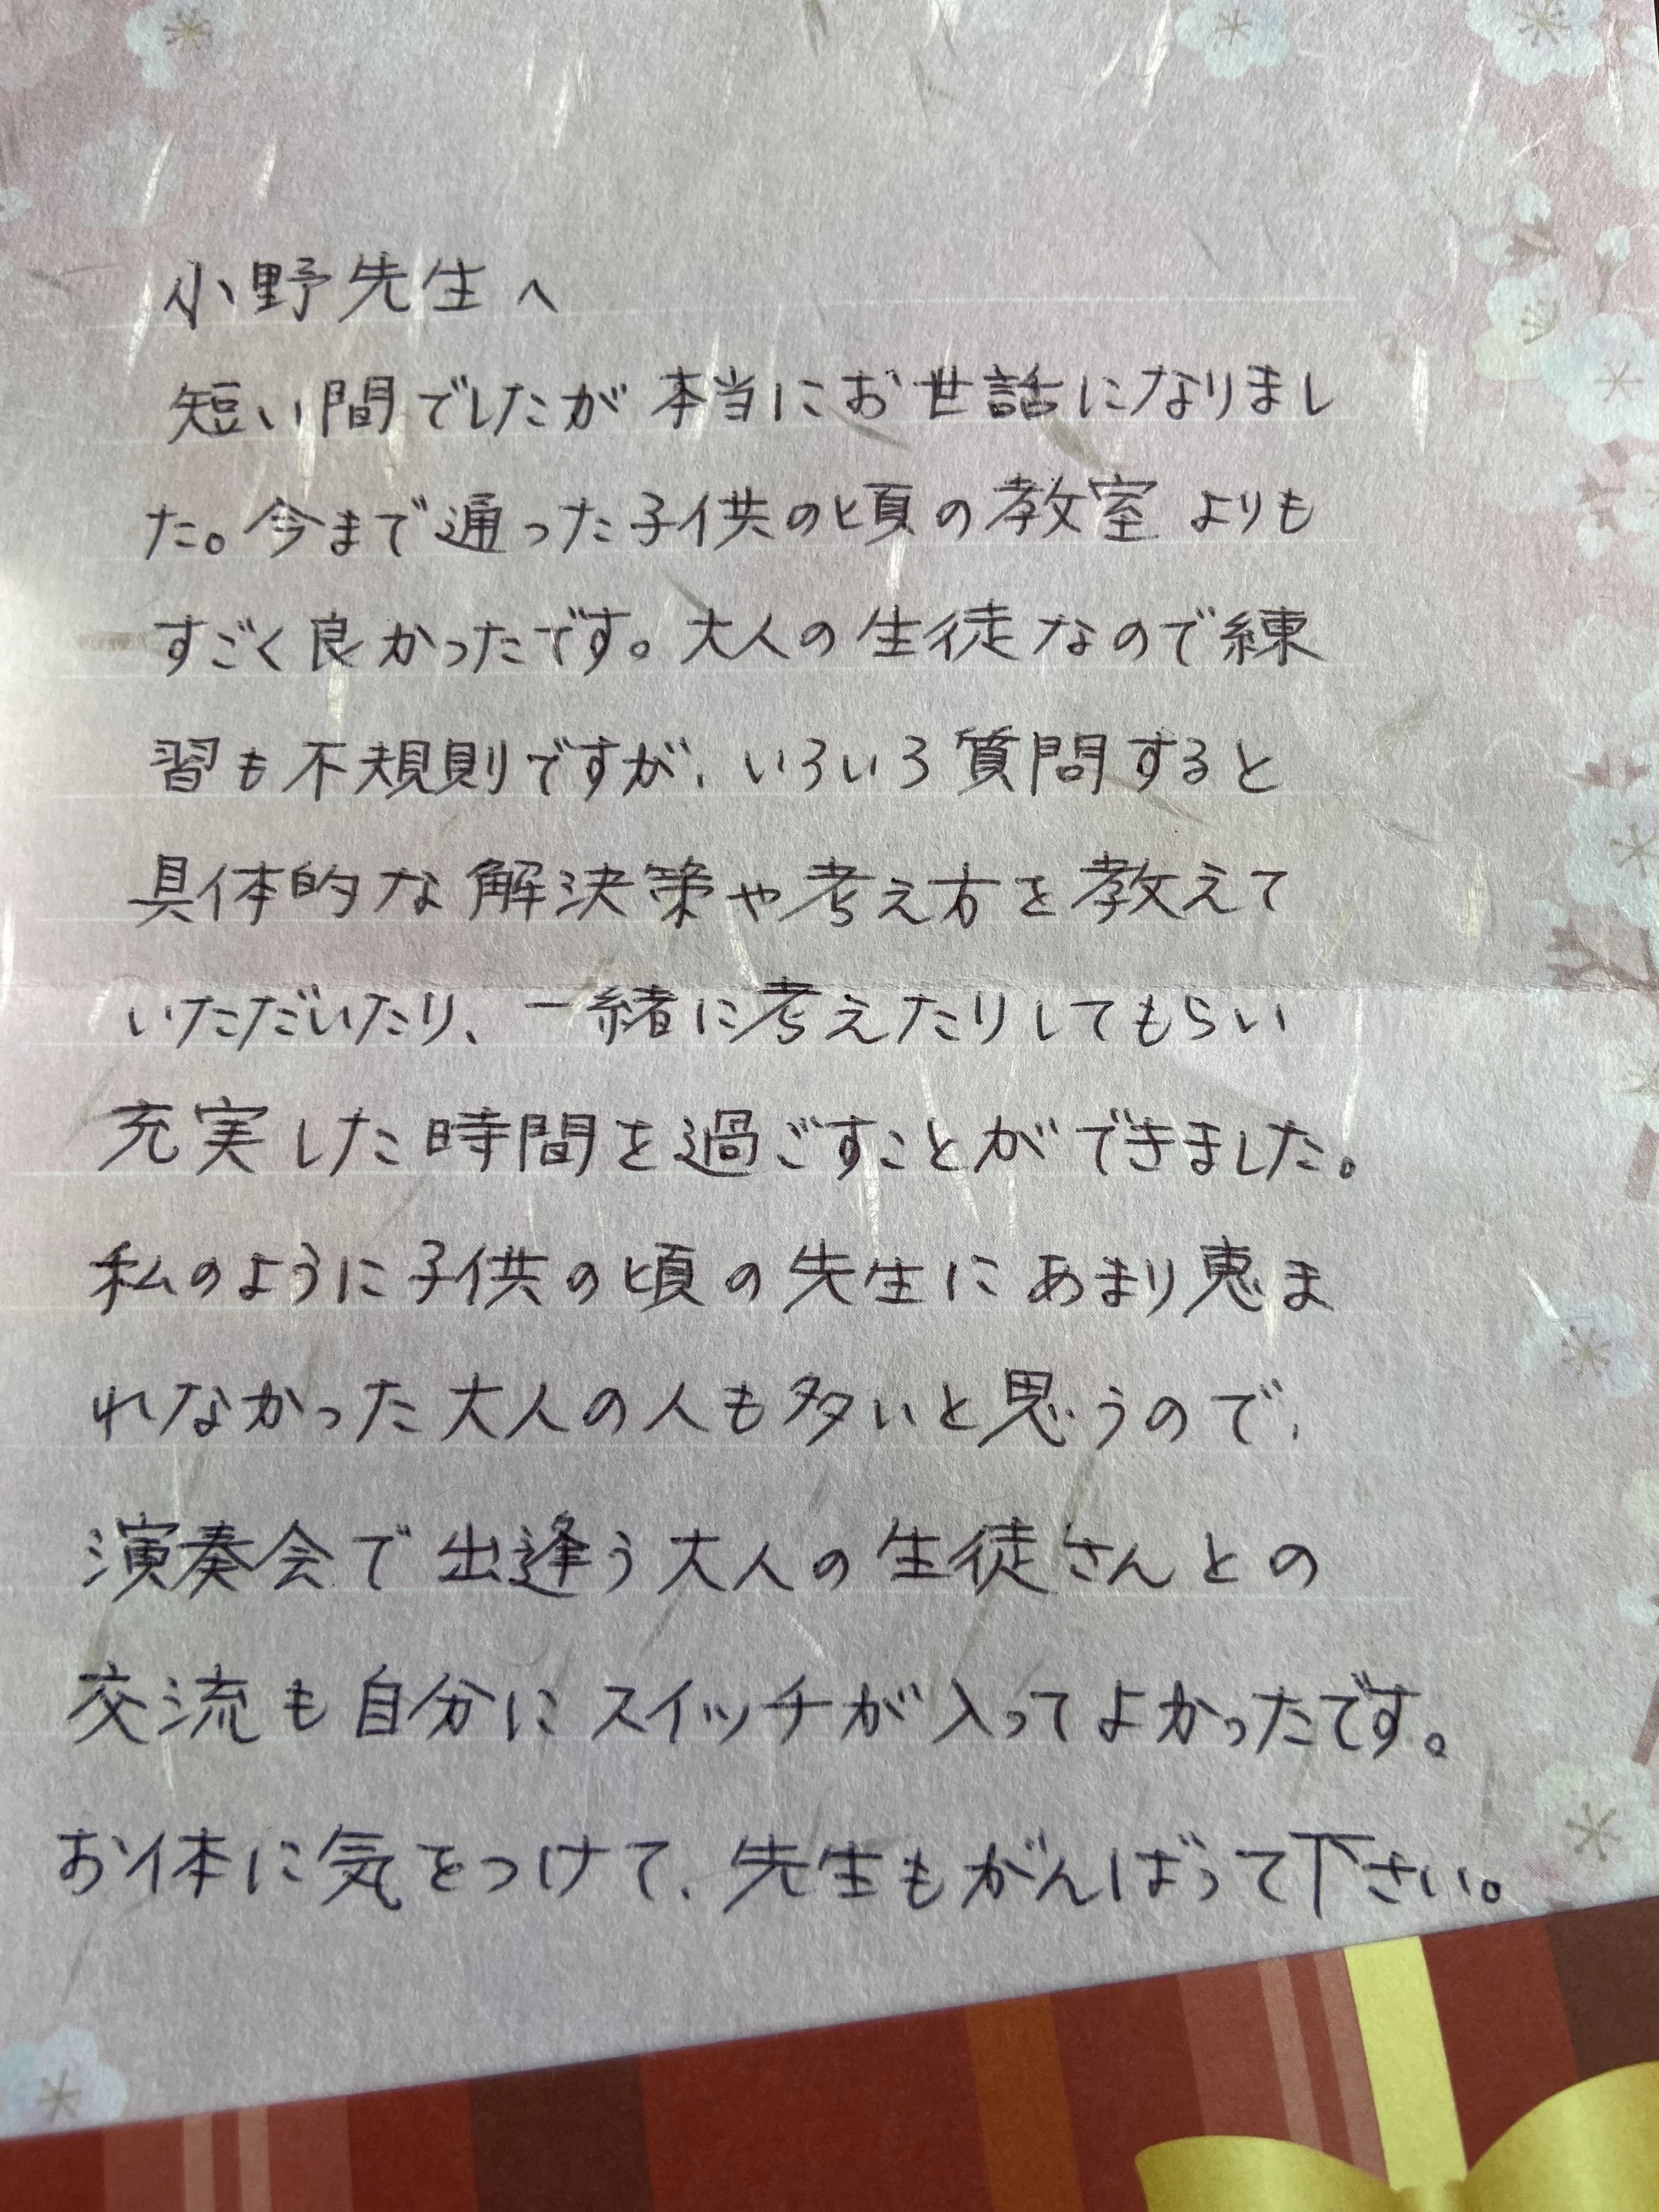 小野先生へ
短い間でしたが本当にお世話になりまし
た。今まで通った子供の頃の教室よりも
すごく良かったです。大人の生徒なので練
習も不規則ですが、いろいろ質問すると
具体的な解決策や考え方を教えて
いただいたり、一緒に考えたりしてもらい
充実した時間を過ごすことができました。
私のように子供の頃の先生にあまり恵ま
れなかった大人の人も多いと思うので、
演奏会で出逢う大人の生徒さんとの
交流も自分にスイッチが入ってよかったです。
お体に気をつけて、先生もがんばって下さい。